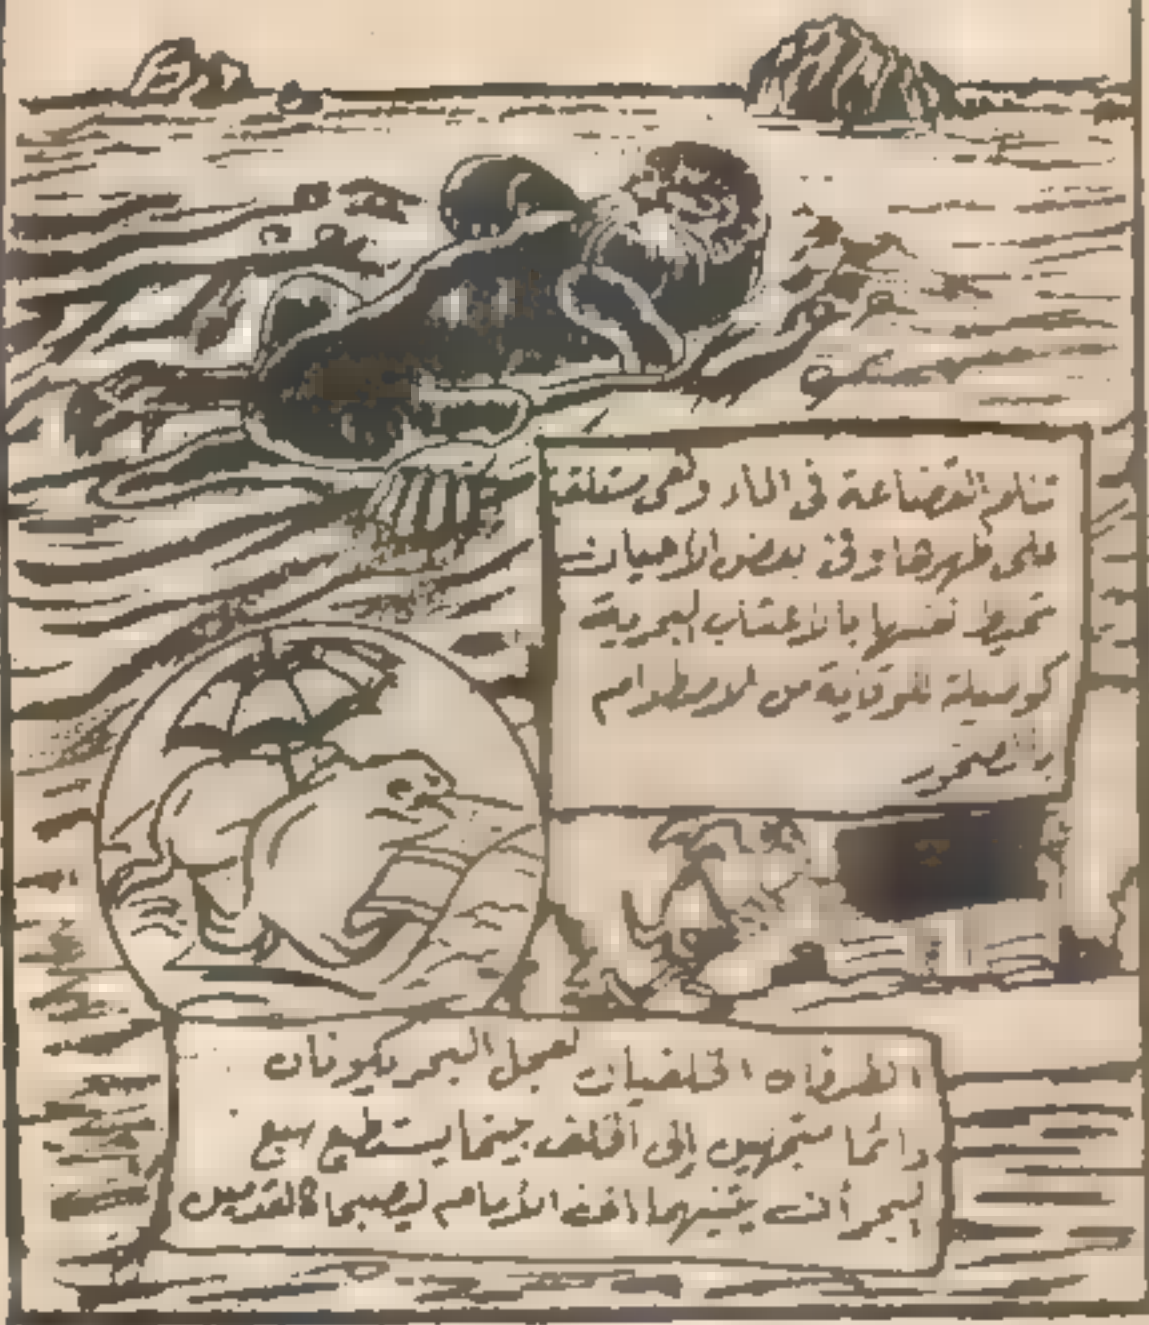 تنام القضاعة فى الماء وهى مستلقة
على ظهرها وفى بعض الأحيان
تحيط نفسها بالاعشاب البحرية
كوسيلة للوقاية من الاصطدام
بالصخور
الطرفان الخلفيان لعجل البحر يكونان
دائما متجهين إلى الخلف بينما يستطيع سبع
البحر أن يثنيهما الأمام ليصبحا كالقدمين